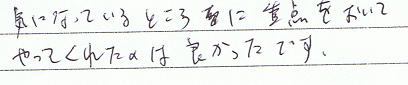 気になっているところに重点をおいて
やってくれたのは良かったです.